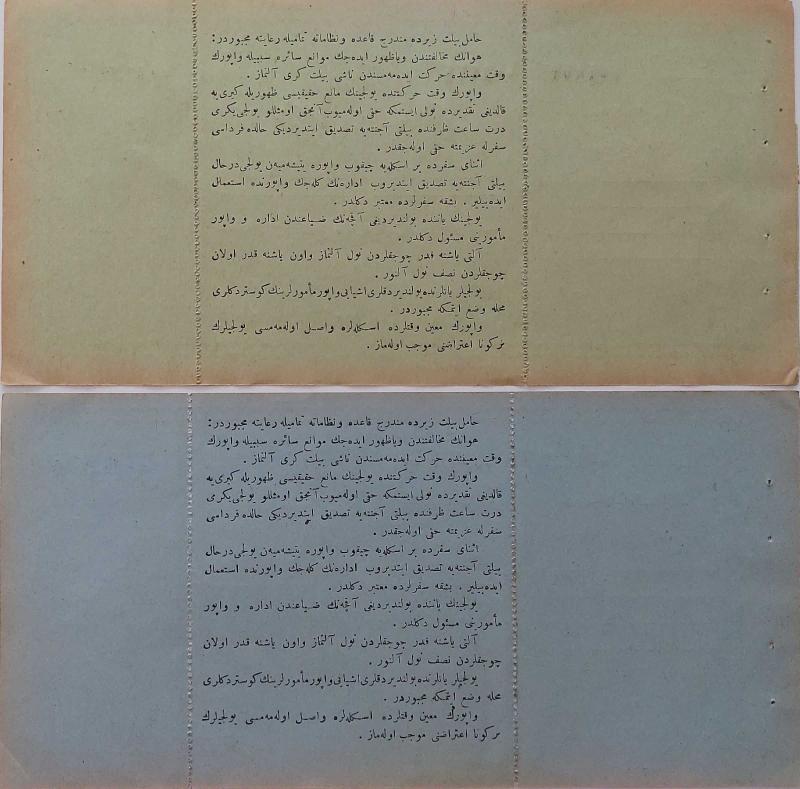 حامل بیلت زیرده مندرج قاعده ونظاماته تمامیله رعایته مجبوردر:
هوانك مخالفتندن ویاظهور ایده‌جك موانع سائره سببیله واپورك
وقت معیننده حركت ایده‌مه‌مسندن ناشی بیلت كری آلنماز .
واپورك وقت حركتنده یولجینك مانع حقیقیسی ظهوریله كیری‌یه
قالدیغی تقدیرده نولی ایستمكه حقی اوله‌میوب آنجق اومثللو یولجی یكرمی
درت ساعت ظرفنده بیلتی آجنته‌یه تصدیق ایتدیردیكی حالده فرداسی
سفرله عزیمته حقی اوله‌جقدر .
اثنای سفرده بر اسكله‌یه چیقوب واپوره یتیشه‌میه‌ن یولجی درحال
بیلتی آجنته‌یه تصدیق ایتدیروب اداره‌نك كله‌جك واپورنده استعمال
ایده‌بیلیر . بشقه سفرلرده معتبر دكلدر .
یولجینك یاننده بولندیردیغی آقچه‌نك ضیاعندن اداره و واپور
مأمورینی مسئول دكلدر .
آلتی یاشنه قدر چوجقلردن نول آلنماز واون یاشنه قدر اولان
چوجقلردن نصف نول آلنور .
یولجیلر یانلرنده بولندیردقلری اشیایی واپور مأمورلرینك كوستردكلری
محله وضع ایتمكه مجبوردر .
واپورك معین وقتلرده اسكله‌لره واصل اوله‌مه‌مسی یولجیلرك
بركونا اعتراضنی موجب اوله‌ماز .
حامل بیلت زیرده مندرج قاعده ونظاماته تمامیله رعایته مجبوردر:
هوانك مخالفتندن ویاظهور ایده‌جك موانع سائره سببیله واپورك
وقت معیننده حركت ایده‌مه‌مسندن ناشی بیلت كری آلنماز .
واپورك وقت حركتنده یولجینك مانع حقیقیسی ظهوریله كیری‌یه
قالدیغی تقدیرده نولی ایستمكه حقی اوله‌میوب آنجق اومثللو یولجی یكرمی
درت ساعت ظرفنده بیلتی آجنته‌یه تصدیق ایتدیردیكی حالده فرداسی
سفرله عزیمته حقی اوله‌جقدر .
اثنای سفرده بر اسكله‌یه چیقوب واپوره یتیشه‌میه‌ن یولجی درحال
بیلتی آجنته‌یه تصدیق ایتدیروب اداره‌نك كله‌جك واپورنده استعمال
ایده‌بیلیر . بشقه سفرلرده معتبر دكلدر .
یولجینك یاننده بولندیردیغی آقچه‌نك ضیاعندن اداره و واپور
مأمورینی مسئول دكلدر .
آلتی یاشنه قدر چوجقلردن نول آلنماز واون یاشنه قدر اولان
چوجقلردن نصف نول آلنور .
یولجیلر یانلرنده بولندیردقلری اشیایی واپور مأمورلرینك كوستردكلری
محله وضع ایتمكه مجبوردر .
واپورك معین وقتلرده اسكله‌لره واصل اوله‌مه‌مسی یولجیلرك
بركونا اعتراضنی موجب اوله‌ماز .